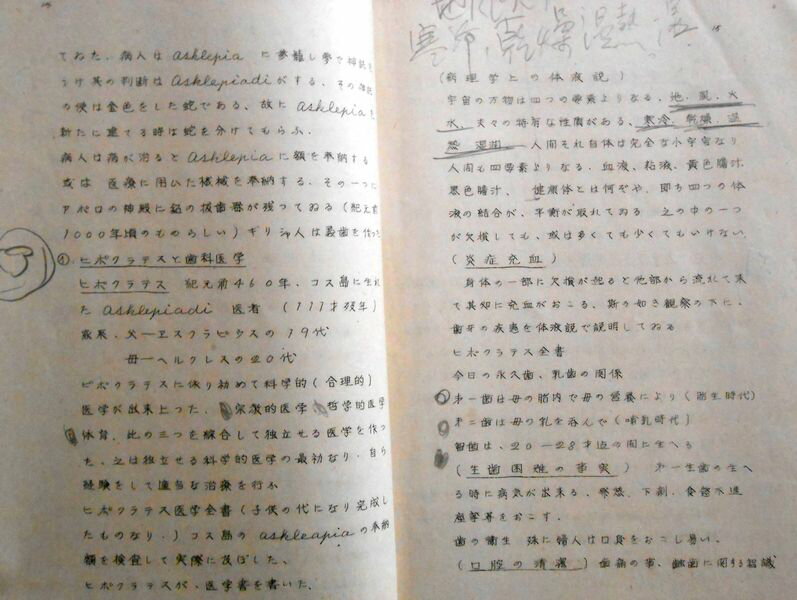 てゐた、病人は asklepia に参籠し夢で神託を
うけ其の判断は Asklepiadi がする、その神託
の使は金色をした蛇である、故に asklepia を
新たに建てる時は蛇を分けてもらふ、
病人は病が治ると Asklepia に額を奉納する
或は 医療に用ひた機械を奉納する、その一つに
アポロの神殿に鉛の抜歯器が残つてゐる(紀元前
1000年頃のものらしい)ギリシャ人は義歯を作つた
① ヒポクラテスと歯科医学
ヒポクラテス 紀元前460年、コス島に生れ
た asklepiadi 医者 (111才歿年)
家系、父—エスクラピウスの19代
母—ヘルクレスの20代
ヒポクラテスに依り初めて科学的(合理的)
医学が出来上つた、宗教的医学 哲学的医学
体育、此の三つを綜合して独立せる医学を作つ
た、之は独立せる科学的医学の最初なり、自ら
経験をして適当な治療を行ふ
ヒポクラテス医学全書(子供の代になり完成し
たものなり、)コス島の askleapia の奉納
額を検査して実際に及ぼした、
ヒポクラテスが、医学書を書いた、
寒冷、乾燥 湿熱
15
(病理学上の体液説)
宇宙の万物は四つの要素よりなる、地、風、火
水、夫々の特有な性質がある、寒冷、乾燥、温
熱 湿潤 人間それ自体は完全な小宇宙なり
人間も四要素よりなる、血液、粘液、黄色胆汁
黒色胆汁、健康体とは何ぞや、即ち四つの体
液の結合が、平衡が取れてゐる 之の中の一つ
が欠損しても、或は多くても少くてもいけない、
(炎症充血)
身体の一部に欠損が起ると他部から流れて来
て其処に充血がおこる、斯の如き観察の下に、
歯牙の疾患を体液説で説明してゐる
ヒポクラテス全書
今日の永久歯、乳歯の関係
第一歯は母の胎内で母の営養により(胎生時代)
第二歯は母の乳を呑んで(哺乳時代)
智歯は、20—28才迄の間に生へる
(生歯困難の事実) 第一生歯の生へ
る時に病気が出来る、発熱、下剤、食慾不進
痙攣等をおこす、
歯の衛生 殊に婦人は口臭をおこし易い、
(口腔の清潔) 歯痛の事、齲歯に関する知識